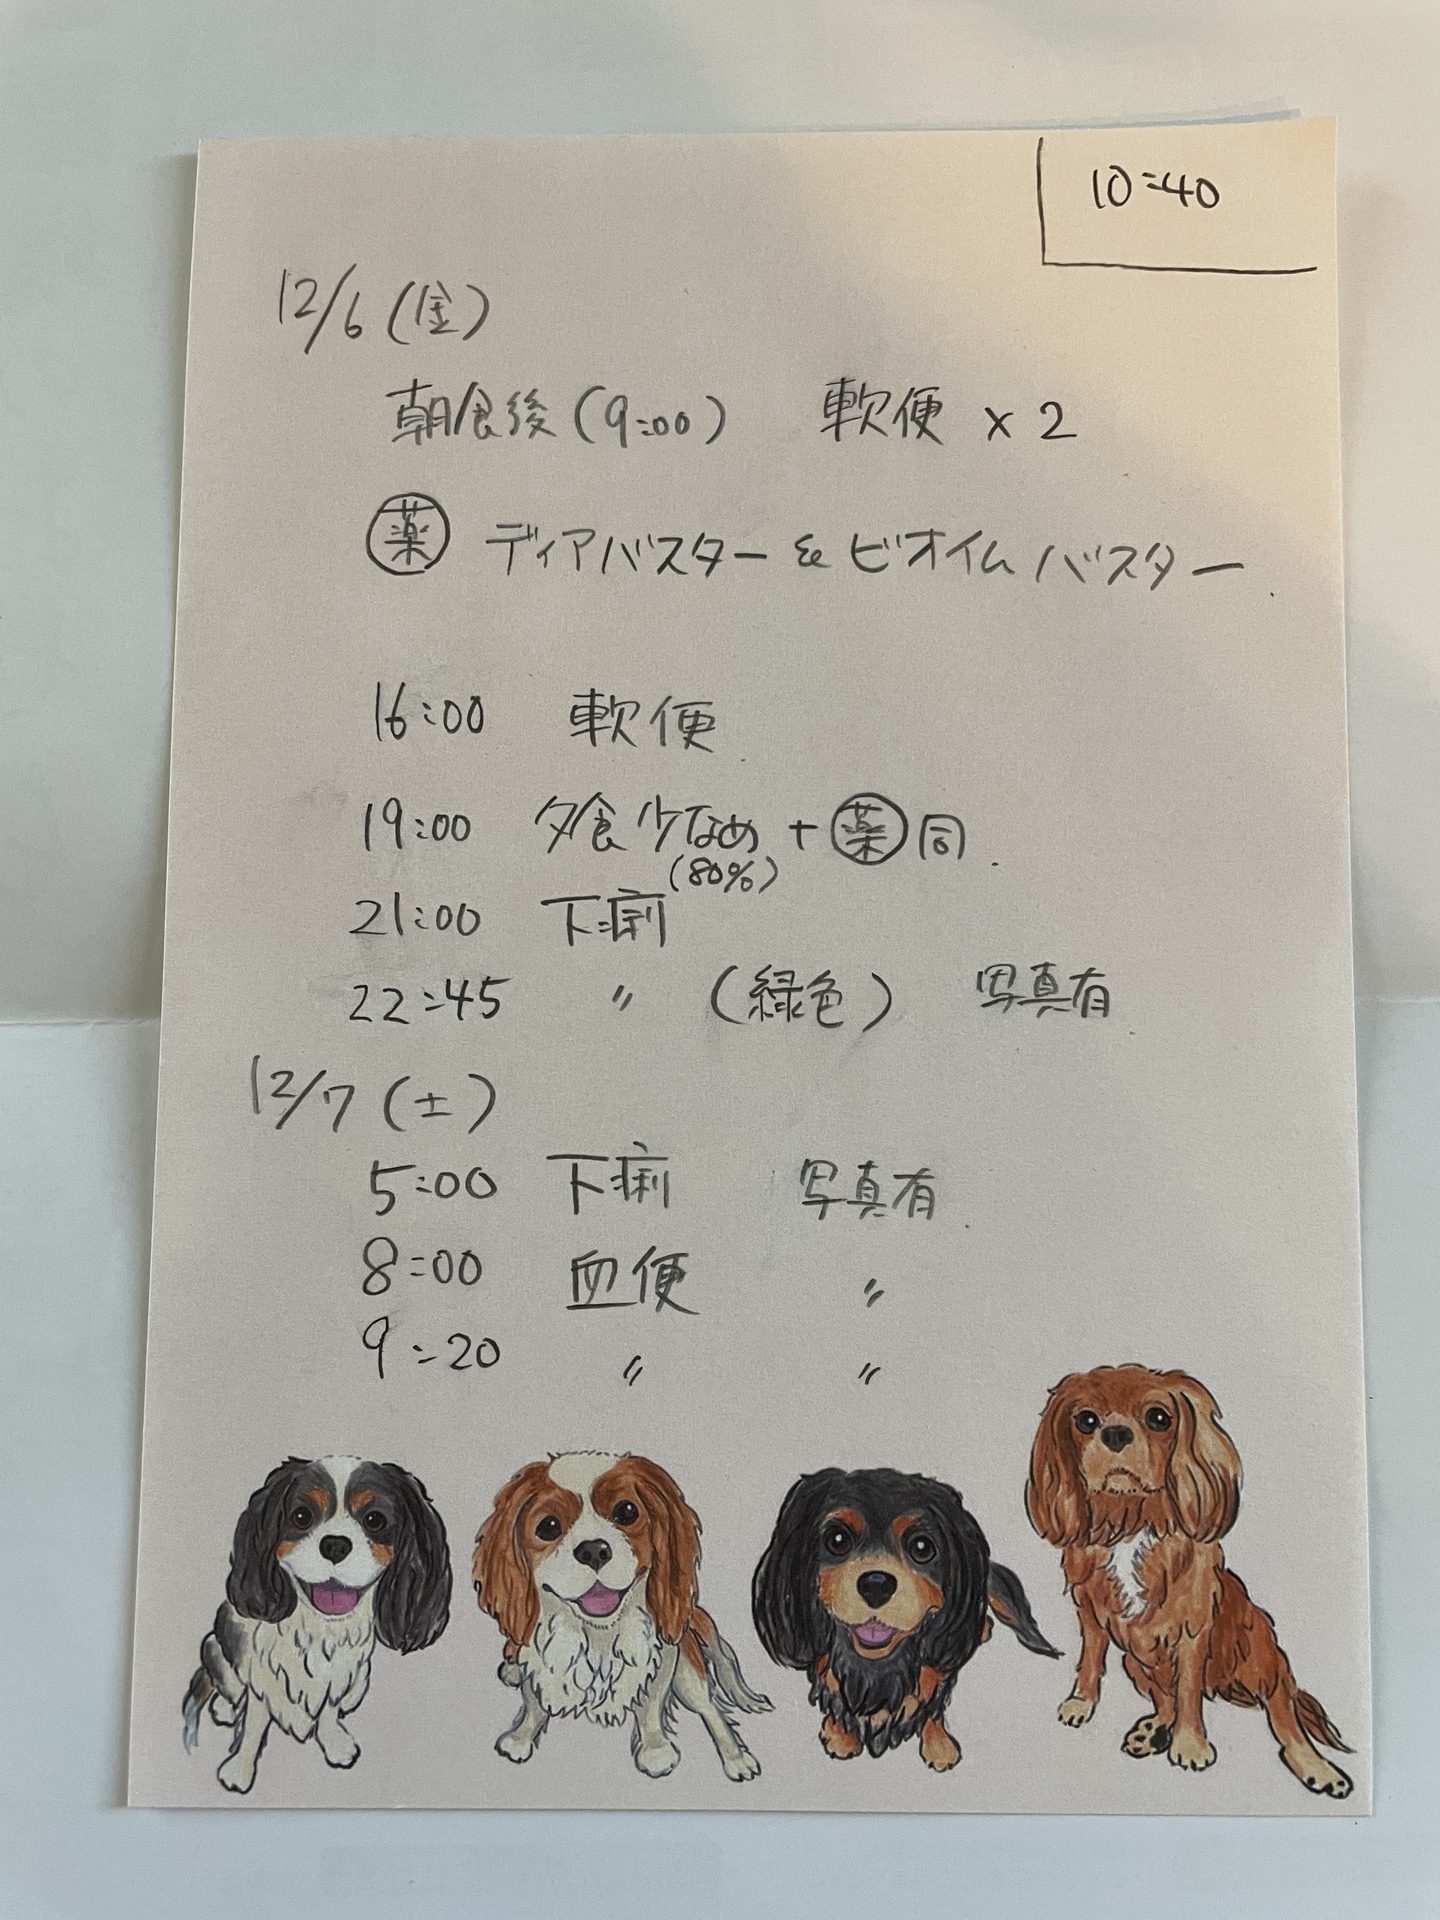 10:40
12/6(金)
朝食後(9:00) 軟便 × 2
薬 ディアバスター & ビオイムバスター
16:00 軟便
19:00 夕食少なめ + 薬同.
(80%)
21:00 下痢
22:45 〃 (緑色) 写真有
12/7(土)
5:00 下痢 写真有
8:00 血便 〃
9:20 〃 〃